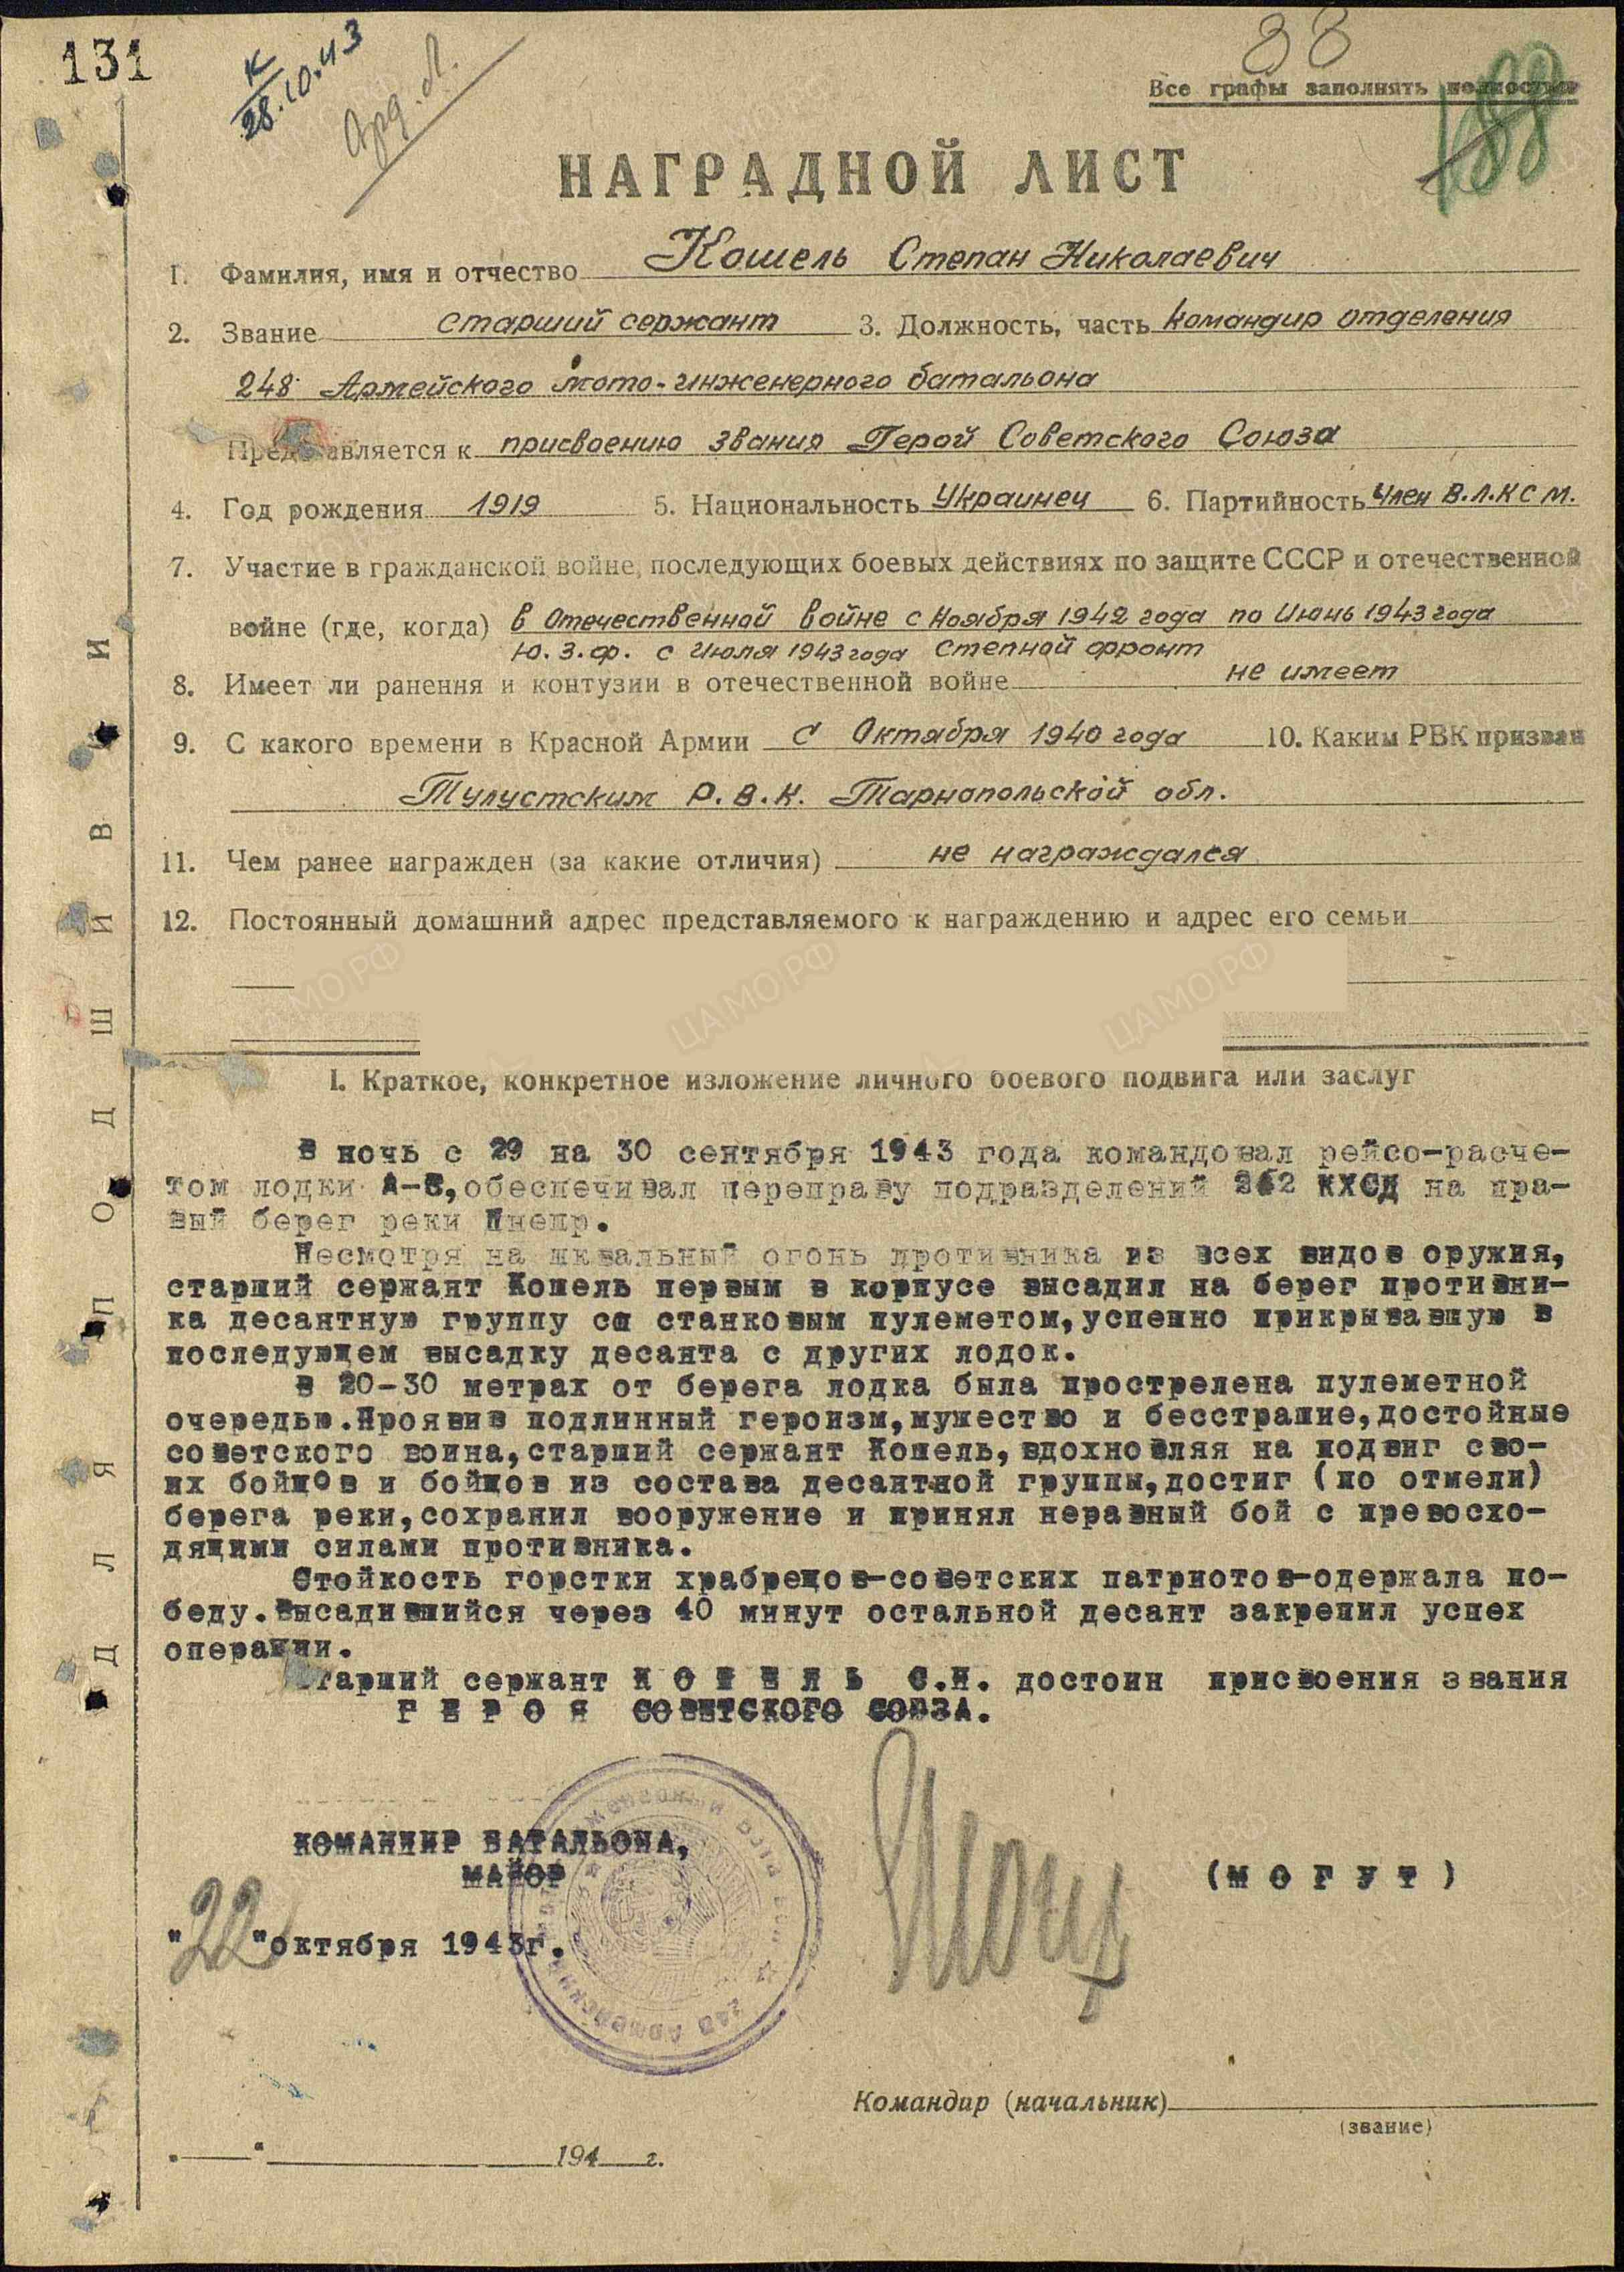 131
К
28.10.43
Орд. Л.
88
Все графы заполнять полностью
188
НАГРАДНОЙ ЛИСТ
1. Фамилия, имя и отчество Кошель Степан Николаевич
2. Звание старший сержант 3. Должность, часть командир отделения
248 Армейского мото-инженерного батальона
Представляется к присвоению звания Герой Советского Союза
4. Год рождения 1919 5. Национальность Украинец 6. Партийность Член В.Л.К С М.
7. Участие в гражданской войне, последующих боевых действиях по защите СССР и отечественной
войне (где, когда) в Отечественной войне с Ноября 1942 года по Июнь 1943 года
Ю. З. ф. с Июля 1943 года Степной фронт
8. Имеет ли ранения и контузии в отечественной войне не имеет
9. С какого времени в Красной Армии с Октября 1940 года 10. Каким РВК призван
Тулустским Р. В. К. Тарнопольской обл.
11. Чем ранее награжден (за какие отличия) не награждался
12. Постоянный домашний адрес представляемого к награждению и адрес его семьи
1. Краткое, конкретное изложение личного боевого подвига или заслуг
В ночь с 29 на 30 сентября 1943 года командовал рейсо-расче-
том лодки А-3, обеспечивал переправу подразделений 252 КХСД на пра-
вый берег реки Днепр.
Несмотря на шквальный огонь противника из всех видов оружия,
старший сержант Кошель первым в корпусе высадил на берег противни-
ка десантную группу со станковым пулеметом, успешно прикрывавшую в
последующем высадку десанта с других лодок.
В 20-30 метрах от берега лодка была прострелена пулеметной
очередью. Проявив подлинный героизм, мужество и бесстрашие, достойные
советского воина, старший сержант Кошель, вдохновляя на подвиг сво-
их бойцов и бойцов из состава десантной группы, достиг (по отмели)
берега реки, сохранил вооружение и принял неравный бой с превосхо-
дящими силами противника.
Стойкость горстки храбрецов-советских патриотов-одержала по-
беду. Высадившийся через 40 минут остальной десант закрепил успех
операции.
Старший сержант К О Ш Е Л Ь С.Н. достоин присвоения звания
Г Е Р О Я СОВЕТСКОГО СОЮЗА.
КОМАНДИР БАТАЛЬОНА,
МАЙОР
(М О Г У Т)
"22" октября 1943г.
Командир (начальник)
(звание)
194 г.
ДЛЯ ПОДШИВКИ
ЦАМО РФ